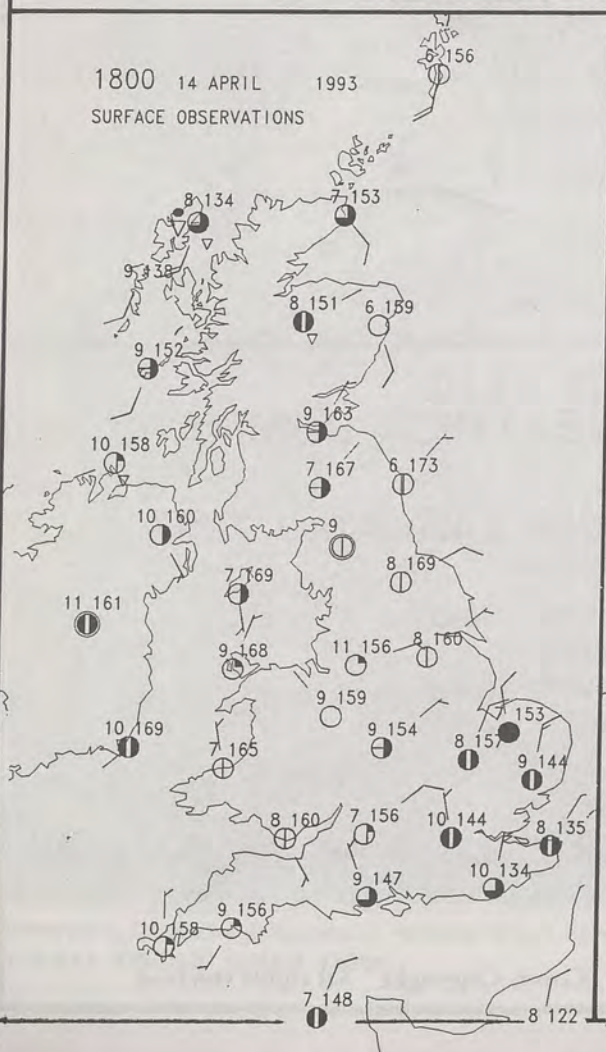 6 156
1800 14 APRIL 1993
SURFACE OBSERVATIONS
8 134
7 153
9 138
8 151
6 159
9 152
9 163
10 158
7 167
6 173
10 160
9
8 169
7 169
11 161
9 168
11 156
8 160
9 159
7 153
10 169
9 154
7 165
8 157
9 144
8 160
7 156
10 144
8 135
9 147
10 134
9 156
10 158
7 148
8 122